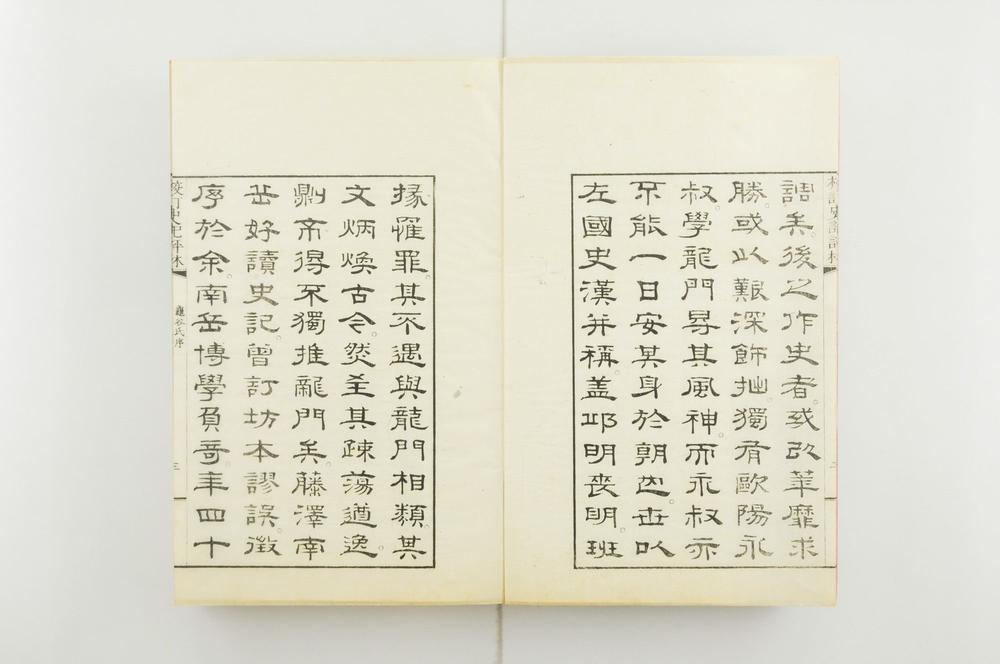 校訂史記評林
詣矣。後之作史者。或以華靡求
勝。或以艱深飾拙。獨有歐陽永
叔。學龍門。得其風神。而永叔亦
不能一日安其身於朝也。世以
左國史漢并稱。蓋邱明喪明。班
掾罹罪。其不遇與龍門相類。其
文炳煥古今。然至其疎蕩遒逸。
則得不獨推龍門矣。藤澤南
岳好讀史記。曾訂坊本謬誤。徵
序於余。南岳博學負奇。年四十
校訂史記評林
龜谷氏序
三